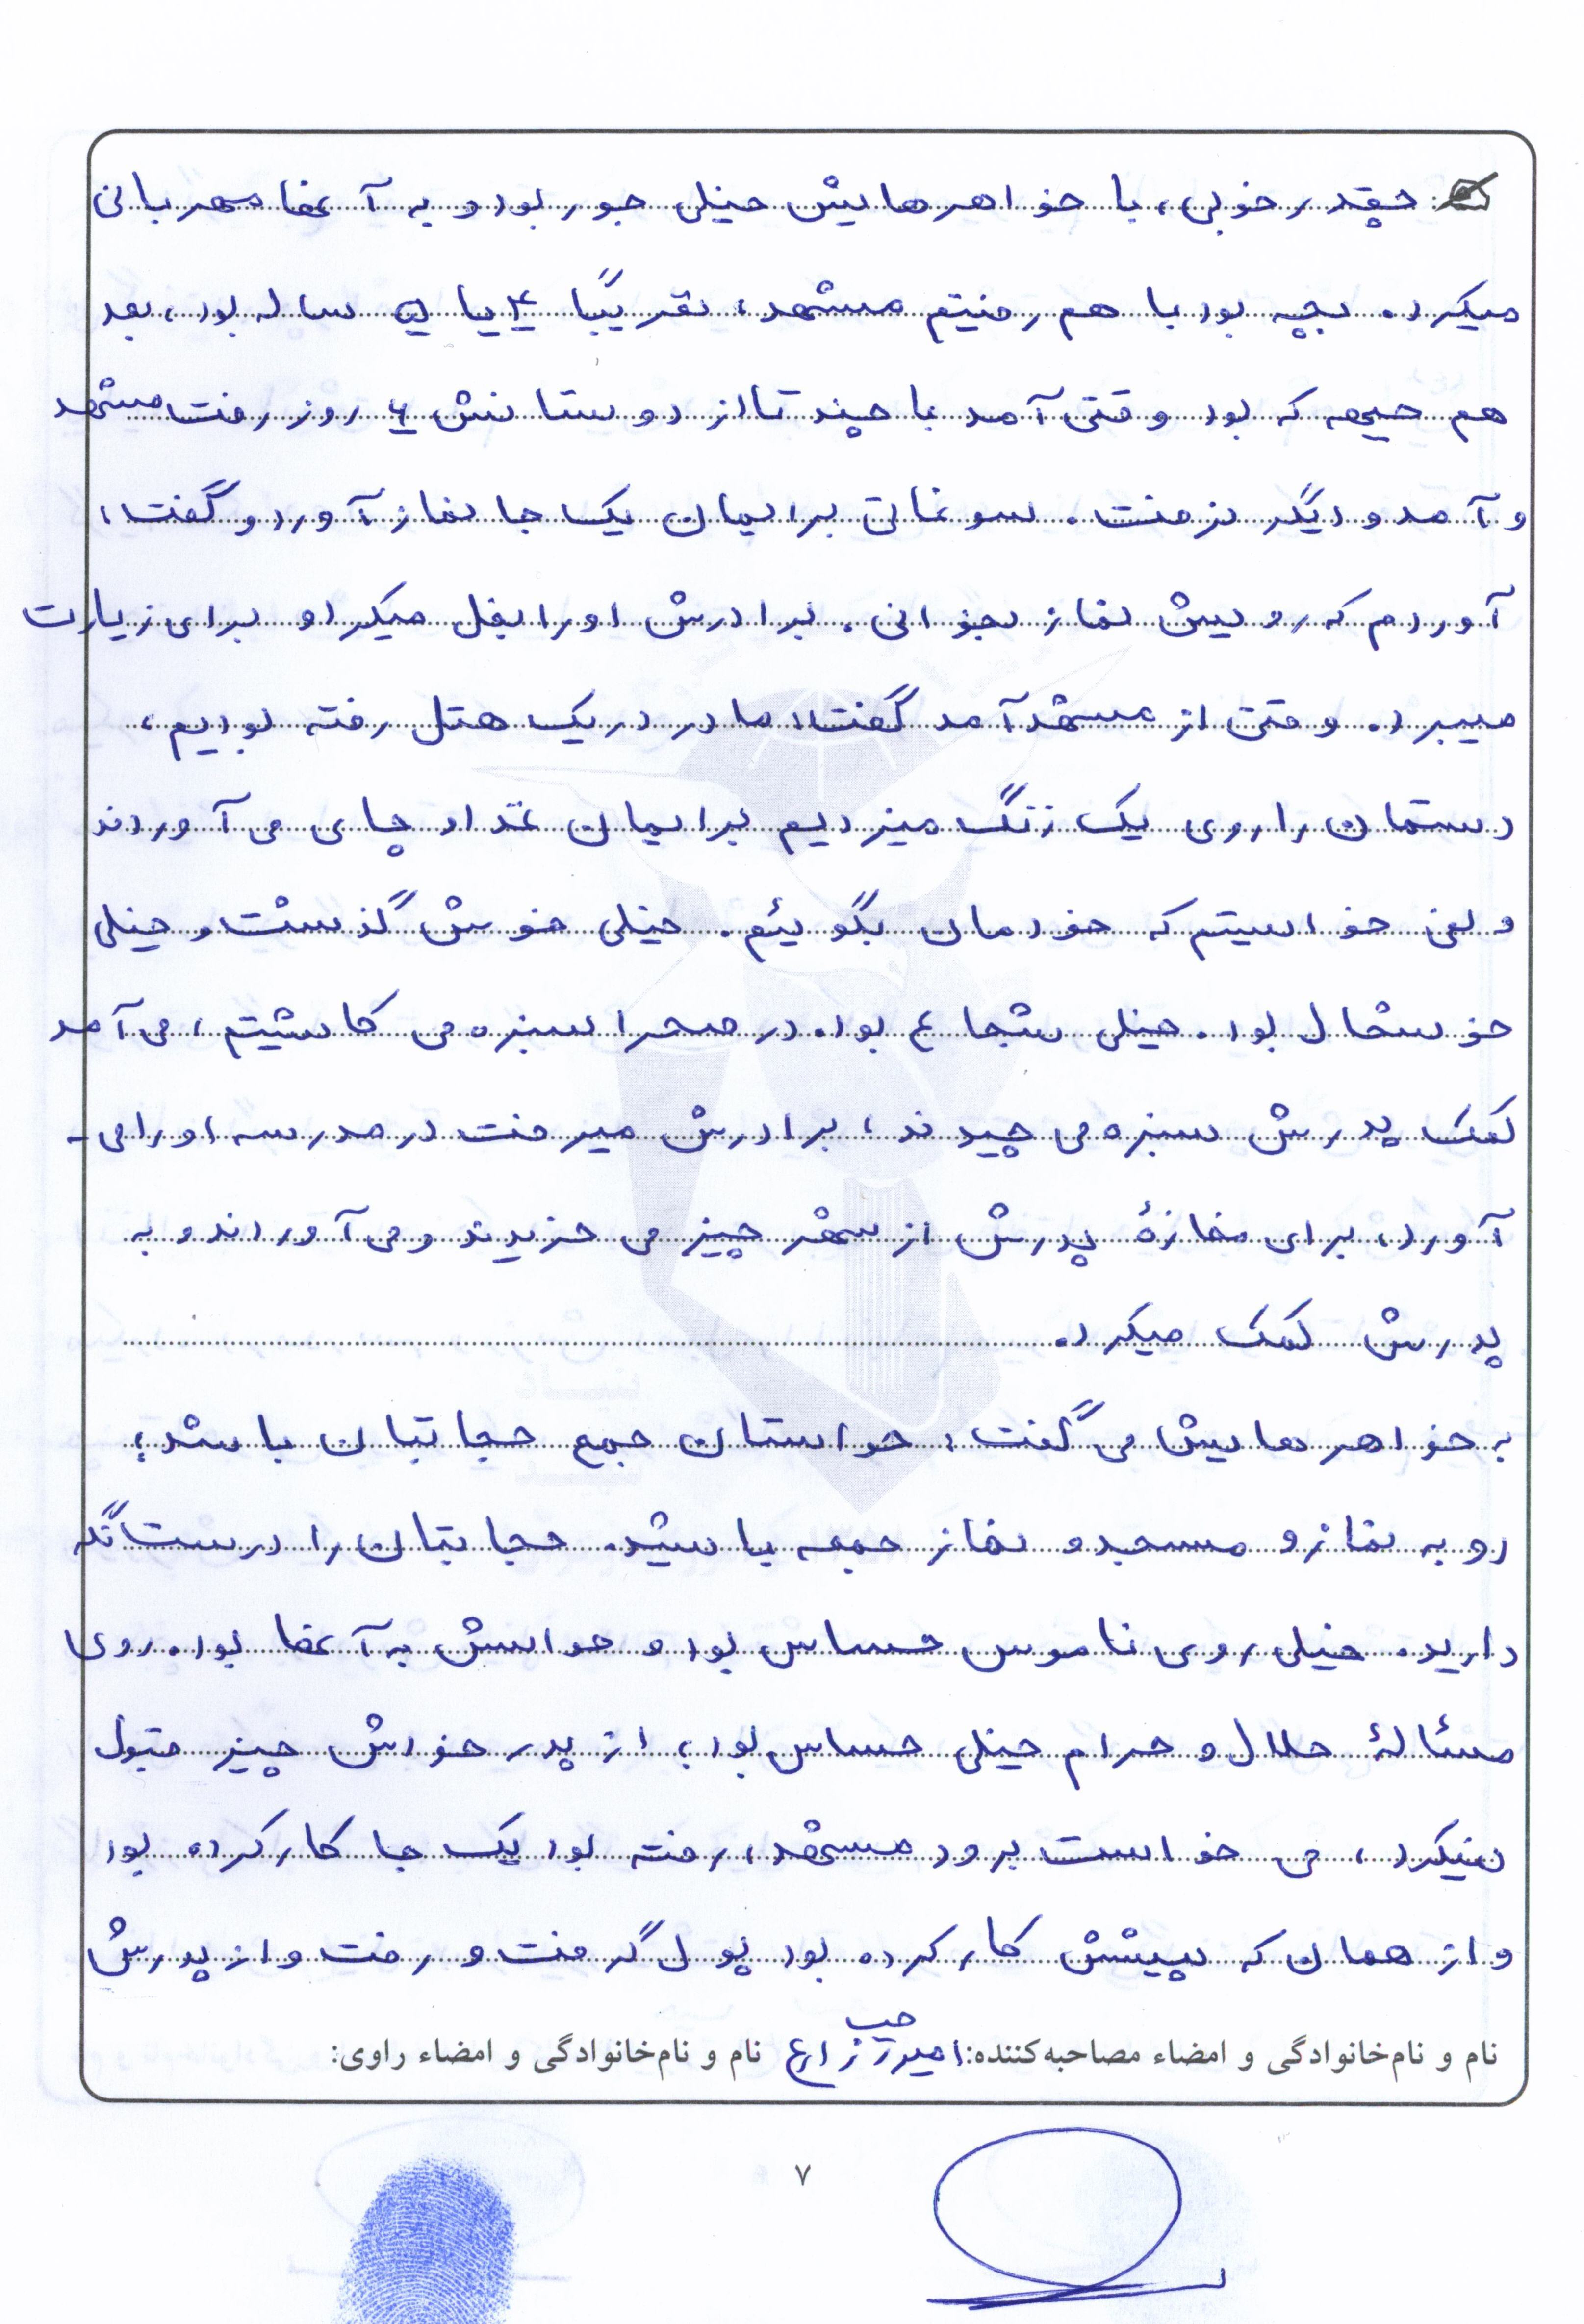 چقدر خوبی، با خواهرهایش خیلی جور بود و به آنها مهربانی
میکرد. بچه بود با هم رفتیم مشهد، تقریبًا ۴ یا ۵ ساله بود، بعد
هم جبهه که بود وقتی آمد با چند تا از دوستانش ۶ روز رفت مشهد
و آمد و دیگر نرفت. سوغاتی برایمان یک جانماز آورد و گفت:
آوردم که رویش نماز بخوانی. برادرش او را بغل میکرد و برای زیارت
میبرد. وقتی از مشهد آمد گفت: مادر در یک هتل رفته بودیم،
دستمان را روی یک زنگ میزدیم برایمان غذا و چای می آوردند
و نمی خواستیم که خودمان بگوئیم. خیلی خوش گذشت و خیلی
خوشحال بود. خیلی شجاع بود. در صحرا سبزه می کاشتیم، می آمد
کمک پدرش سبزه می چیدند، برادرش میرفت در مدرسه او را می-
آورد، برای مغازهٔ پدرش از شهر چیز می خریدند و می آوردند و به
پدرش کمک میکرد.
به خواهرهایش می گفت: حواستان جمع حجابتان باشد؛
رو به نماز و مسجد و نماز جمعه باشید. حجابتان را درست نگه
دارید. خیلی روی ناموس حساس بود و حواسش به آنها بود. روی
مسئالهٔ حلال و حرام خیلی حساس بود؛ از پدر خودش چیز قبول
نمیکرد، می خواست برود مشهد، رفته بود یک جا کار کرده بود
و از همان که پیشش کار کرده بود پول گرفت و رفت و از پدرش
نام و نام‌خانوادگی و امضاء مصاحبه‌کننده: امیر زارع نام و نام‌خانوادگی و امضاء راوی:
۷